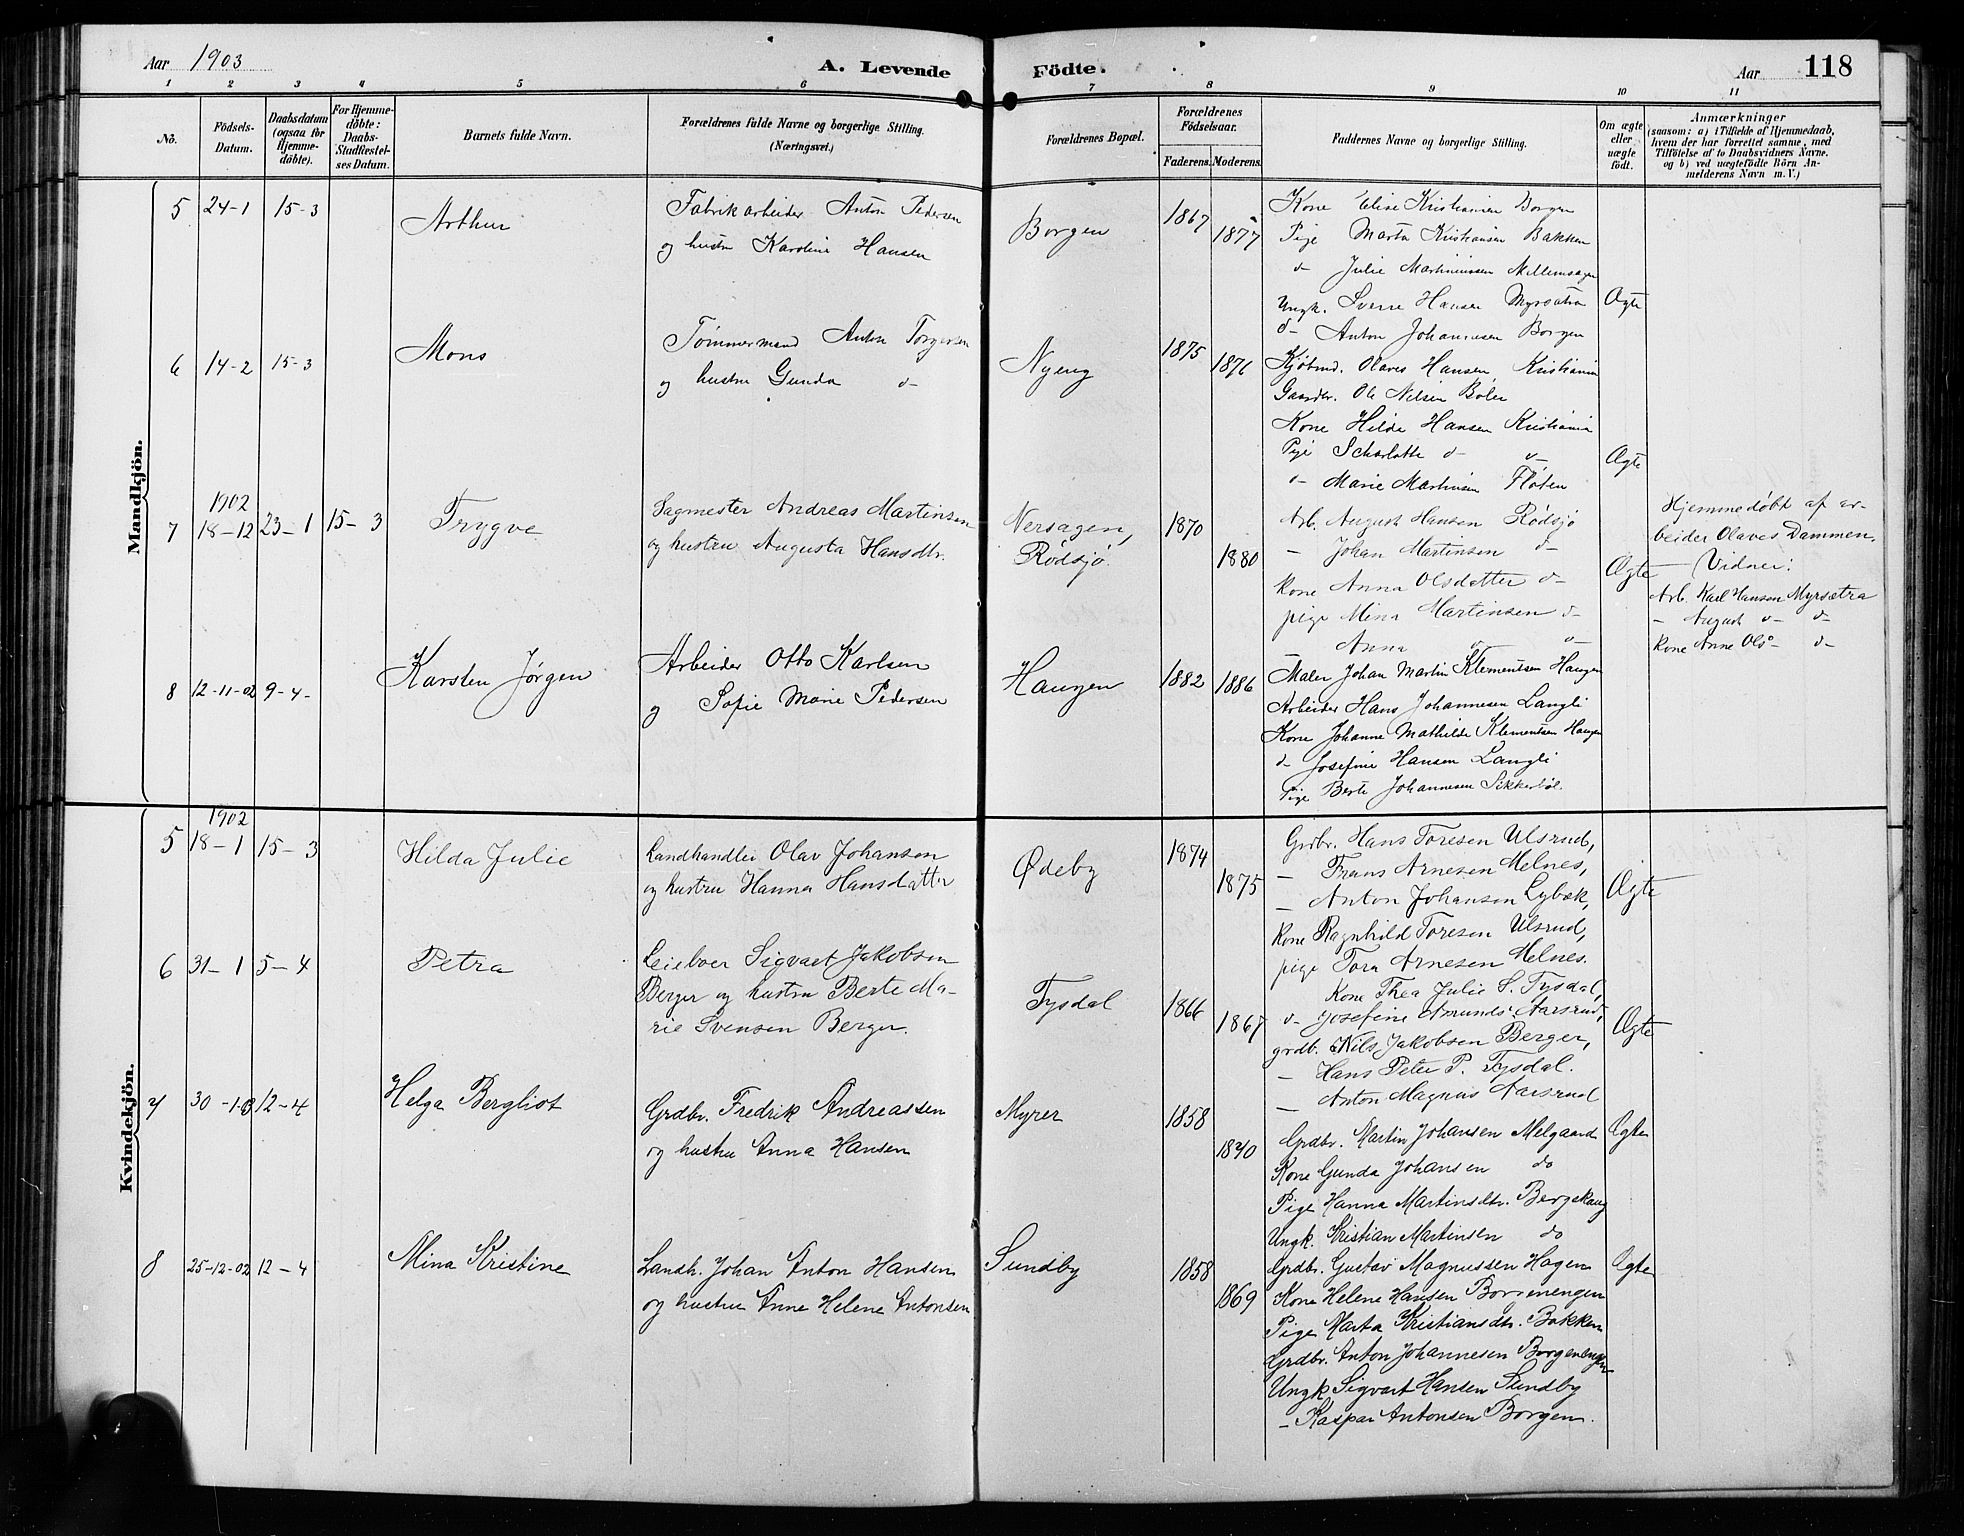 Aar 1903
A. Levende
Födte.
Aar
118
1 2 3 4 5 6 7 8 9 10 11
No.
Födsels-Datum.
Daabsdatum (ogsaa for Hjemme-döbte).
For Hjemme-döbte: Daabs-Stadfæstel-ses Datum.
Barnets fulde Navn.
Forældrenes fulde Navne og borgerlige Stilling. (Næringsvei.)
Forældrenes Bopæl.
Forældrenes Födselsaar.
Faderens. Moderens.
Faddernes Navne og borgerlige Stilling.
Om ægte eller uægte födt.
Anmærkninger
(saasom: a) i Tilfælde af Hjemmedaab,
hvem der har forrettet samme, med
Tilföielse af to Daabsvidners Navne.
og b) ved uægtefödte Börn An-
melderens Navn m. V.)
Mandkjön.
5 24-1 15-3 Arthur
Fabrikarbeider Anton Pedersen
og hustru Karoline Hansen
Borgen 1867 1877
Kone Elise Kristiansen Borgen
Pige Marta Kristiansen Bakken
d- Julie Martiniussen Mellemsagen
Ungk. Sverre Hansen Myrsætra
d- Anton Johannesen Borgen
Ægte
6 14-2 15-3 Mons
Tømmermand Anton Torgersen
og hustru Gunda d-
Nyeng 1875 1876
Kjøbmd. Olaves Hansen Kristiania
Gaardbr. Ole Nilsen Bøler
Kone Hilda Hansen Kristiania
Pige Scharlotte d- d-
d- Marie Martinsen Fløten
Ægte
7 1902 18-12 23-1 15-3 Trygve
Sagmester Andreas Martinsen
og hustru Augusta Hansdtr.
Nersagen,
Rødsjø.
1870 1880
Arb. August Hansen Rødsjø
- Johan Martinsen d-
kone Anna Olsdatter d-
pige Mina Martinsen d-
Anna d- d-
Ægte
Hjemmedøbt af ar-
beider Olaves Dammen.
Vidner:
Arb. Karl Hansen Myrsætra
- August d- d-
kone Anne Ols- d-
8 12-11-02 9-4- Karsten Jørgen
Arbeider Otto Karlsen
og Sofie Marie Pedersen
Haugen 1882 1886
Maler Johan Martin Klementsen Haugen
Arbeider Hans Johannesen Langli
Kone Johanne Mathilde Klementsen Haugen
d- Josefine Hansen Langli
Pige Berte Johannesen Sikkerbøl.
Kvindekjön.
5 1902 18-1 15-3 Hilda Julie
Landhandler Olav Johansen
og hustru Hanna Hansdatter
Ødeby 1874 1875
Grdbr. Hans Toresen Ulsrud,
- Frans Arnesen Melnes,
- Anton Johansen Lybæk,
kone Ragnhild Toresen Ulsrud,
pige Tora Arnesen Melnes.
Ægte
6 31-1 5-4 Petra
Leieboer Sigvart Jakobsen
Berger og hustru Berte Ma-
rie Svensen Berger.
Tysdal 1866 1867
Kone Thea Julie S. Tysdal,
d- Josefine Amunds Aarsrud,
grdb. Nils Jakobsen Berger,
- Hans Peter P. Tysdal.
- Anton Magnus Aarsrud
Ægte
7 30-1-03 12-4 Helga Bergliot
Grdbr. Fredrik Andreassen
og hustru Anna Hansen
Myrer 1858
Grdbr. Martin Johansen Melgaard
Kone Gunda Johansen do
Pige Hanna Martinsdtr. Bergskaug
Ungk. Kristian Martinsen do
Ægte
8 25-12-02 12-4 Mina Kristine
Landh. Johan Anton Hansen
og hustru Anne Helene Antonsen
Sundby 1858 1869
Grdbr. Gustav Magnussen Hagen
Kone Helene Hansen Borgenengen
Pige Marta Kristiansdtr. Bakken
Grdbr. Anton Johannesen Borgenengen
Ungk Sigvart Hansen Sundby
- Kaspar Antonsen Borgen.
Ægte